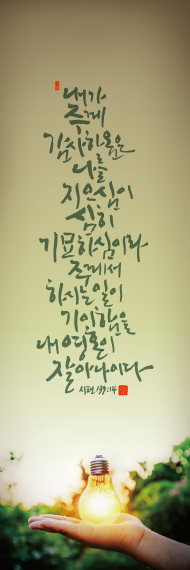 내가
주께
감사하옴은
나를
지으심이
심히
기묘하심이라
주께서
하시는 일이
기이함을
내 영혼이
잘 아나이다
시편 139:14